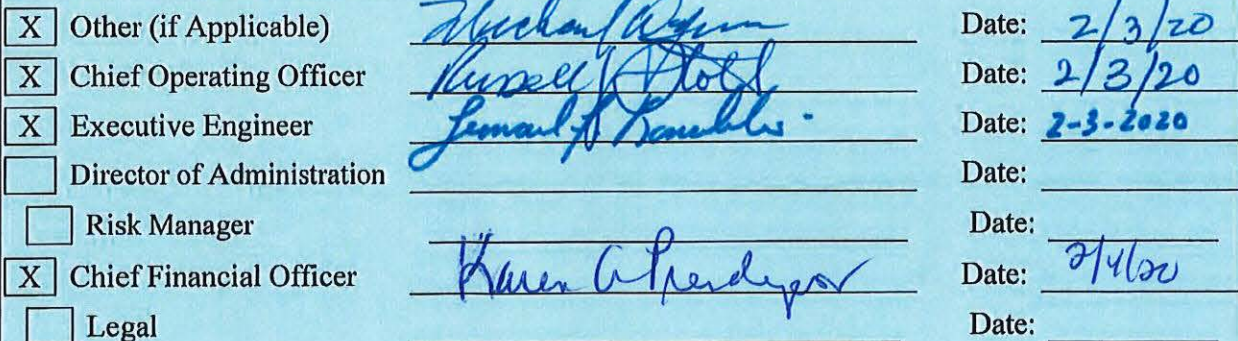 X Other (if Applicable) Michael Date: 2/3/20
X Chief Operating Officer Russell Date: 2/3/20
X Executive Engineer Date: 2-3-2020
Director of Administration Date:
Risk Manager Date:
X Chief Financial Officer Karen A Date: 2/4/20
Legal Date: